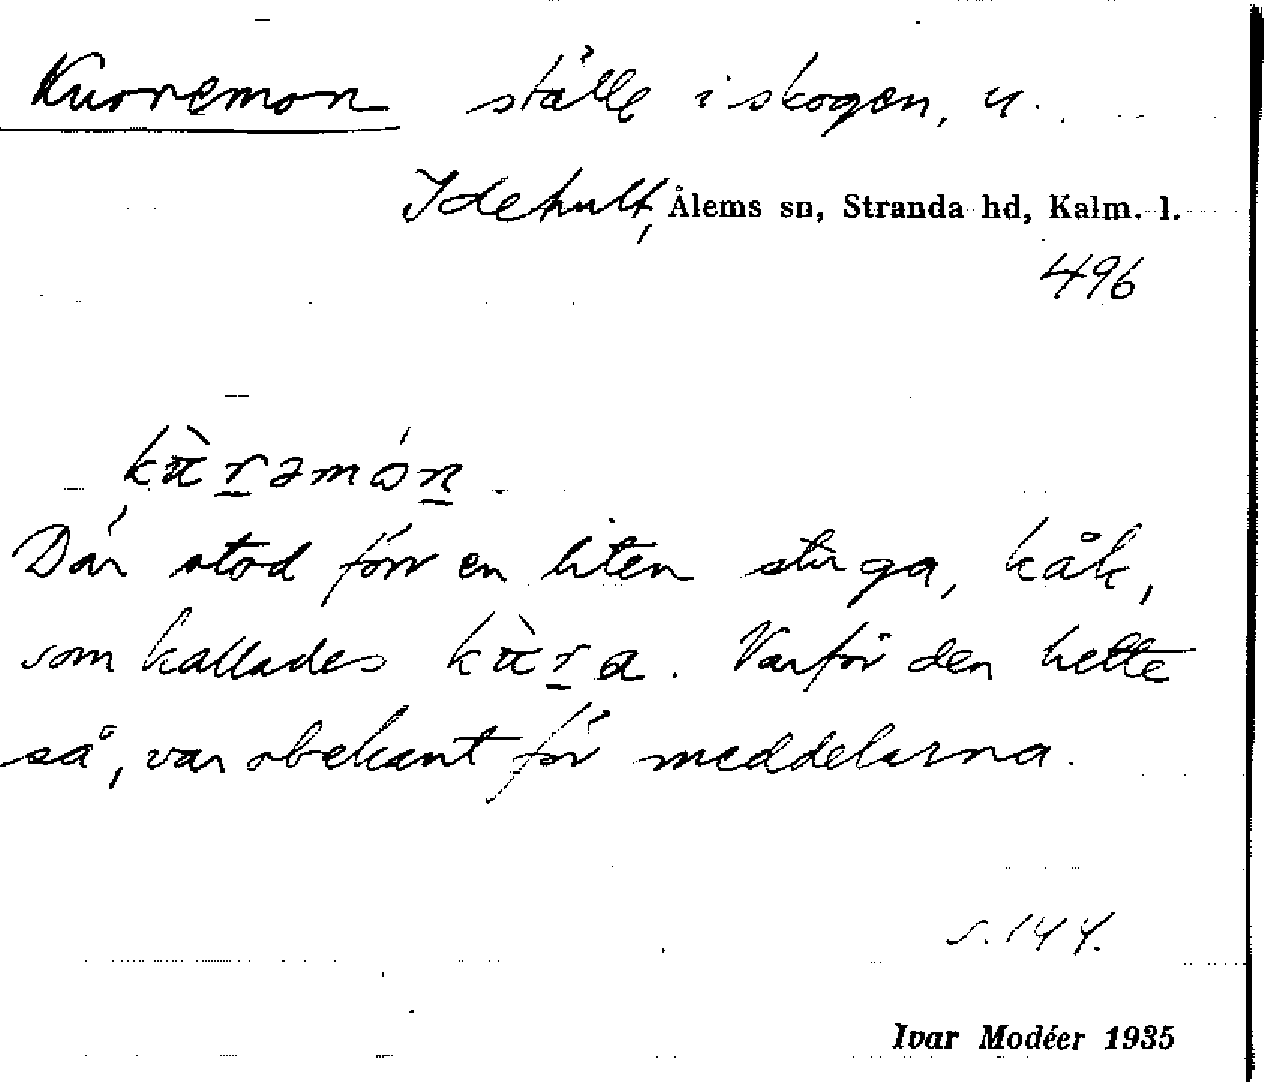 Kurremon ställe i skogen, u.
Idehult, Ålems sn, Stranda hd, Kalm. l.
496
kùrəmón
Där stod förr en liten stuga, kåk,
som kallades kùra. Varför den hette
så, var obekant för meddelarna.
s. 144.
Ivar Modéer 1935